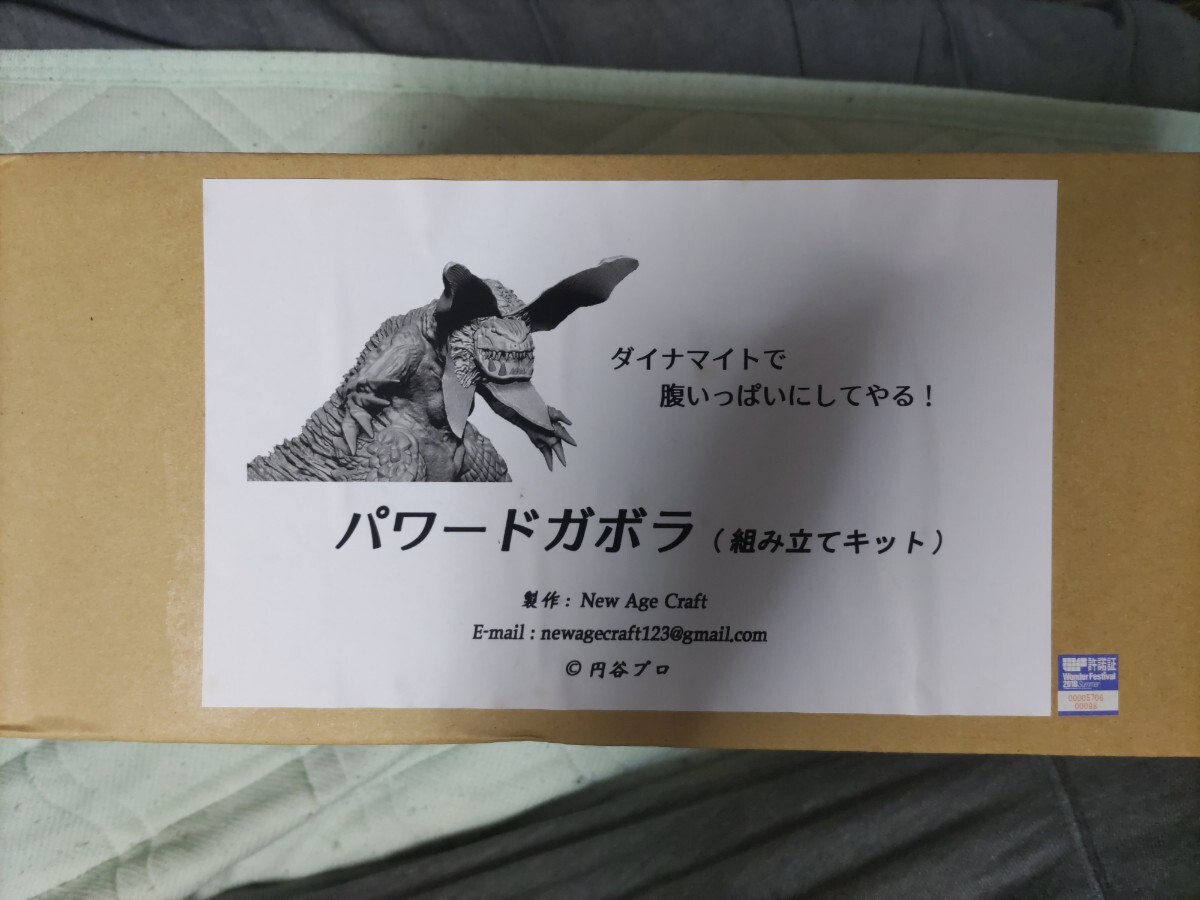 ダイナマイトで
腹いっぱいにしてやる！
パワードガボラ（組み立てキット）
製作：New Age Craft
E-mail : newagecraft123@gmail.com
© 円谷プロ
許諾証
Wonder Festival
2018 Summer